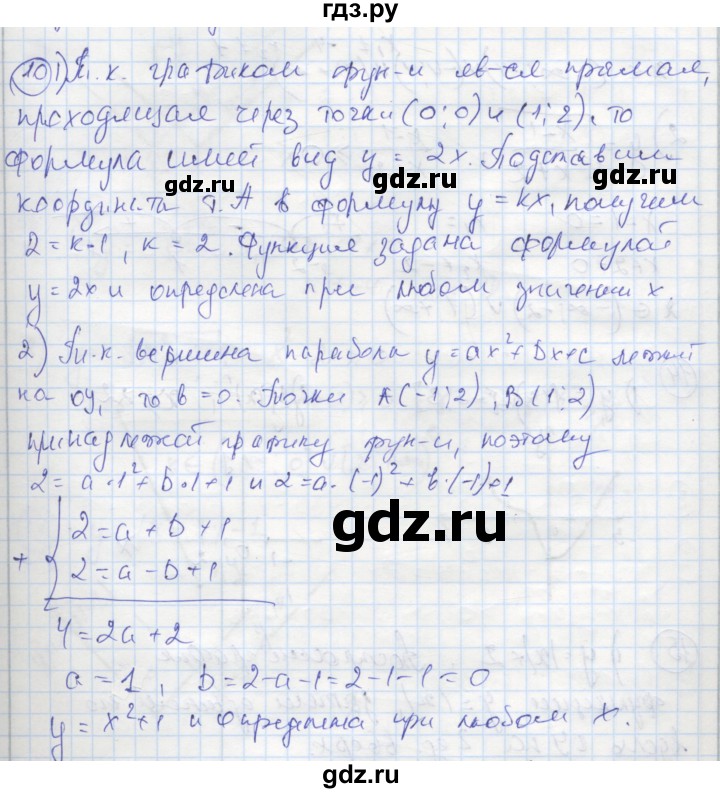 гдз.ру
10 1) Т.к. графиком фун-и яв-ся прямая,
проходящая через точки (0;0) и (1;2), то
формула имей вид y = 2x. Подставим
gdz.ru gdz.ru
координата т. А в формулу y = kx, получим
2 = k·1, k = 2. Функция задана формулой
y = 2x и определена при любом значении x.
2) Т.к. вершина парабола y = ax²+bx+c лежит
на оу, то b = 0. Точки A(-1;2), B(1;2)
принадлежай графику фун-и, поэтому
2 = a·1²+b·1+1 и 2=a·(-1)²+b·(-1)+1
gdz.ru
2 = a + b + 1
+
2 = a - b + 1
4 = 2a + 2
a = 1, b = 2-a-1 = 2-1-1 = 0
y = x²+1 и определена при любом x.
gdz.ru gdz.ru